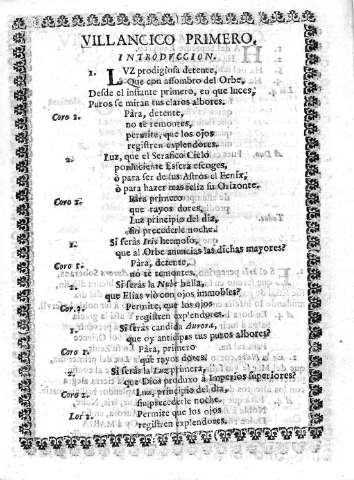 VILLANCICO PRIMERO,
INTRODVCCION.
1. LVZ prodigiosa detente,
Que con assombro del Orbe,
Desde el instante primero, en que luces,
Puros se miran tus claros albores.
Coro 1. Pára, detente,
no te remontes,
permite, que los ojos
registren esplendores.
2. Luz, que el Serafico Cielo
ponniciente Esfera escoges,
ò para ser de sus Astros el Fenix,
ò para hazer mas feliz su Orizonte.
Coro 2. Pára primero
que rayos dores,
Luz principio del dia,
sin precederle noche.
1. Si serás Iris hermoso,
que al Orbe anuncias las dichas mayores?
Coro 1. Pára, detente,
no te remontes.
2. Si serás la Nube bella,
que Elias viò con ojos immobles?
Cor. 2. Permite, que los ojos
registren esplendores.
1. Si serás candida Aurora,
que oy anticipas tus puros albores?
Coro 1. Pára, primero
que rayos dores.
2. Si serás la Luz primera,
que Dios produxo à Imperios superiores?
Coro 2. Luz, principio del dia,
sin precederle noche.
Los 2. Permite que los ojos
registren esplendores.